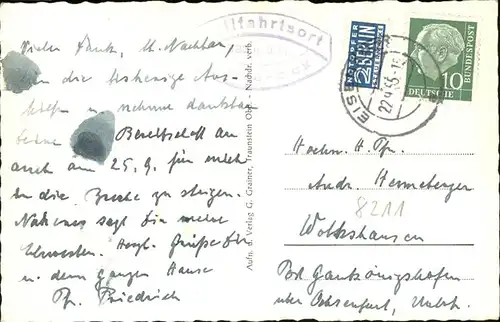 Vielen Dank, H. Nachbar,
für die bisherige Aus-
hilfe u. nehme dankbar
Deine Bereitschaft an
auch am 25. 9. für mich
in die Bresche zu steigen.
Näheres sagt Dir meine
Schwester. Herzl. Grüße Dir
u. dem ganzen Hause
Pfr. Friedrich
Wallfahrtsort
Aufn. u. Verlag G. Grainer, Traunstein Obb. - Nachdr. verb.
NOTOPFER
2 BERLIN
STEUERMARKE
10
DEUTSCHE
BUNDESPOST
22.9.55
Hochw. H. Pfr.
Andr. Henneberger
8211
Wolkshausen
Post Gaukönigshofen
über Ochsenfurt, Unterfr.